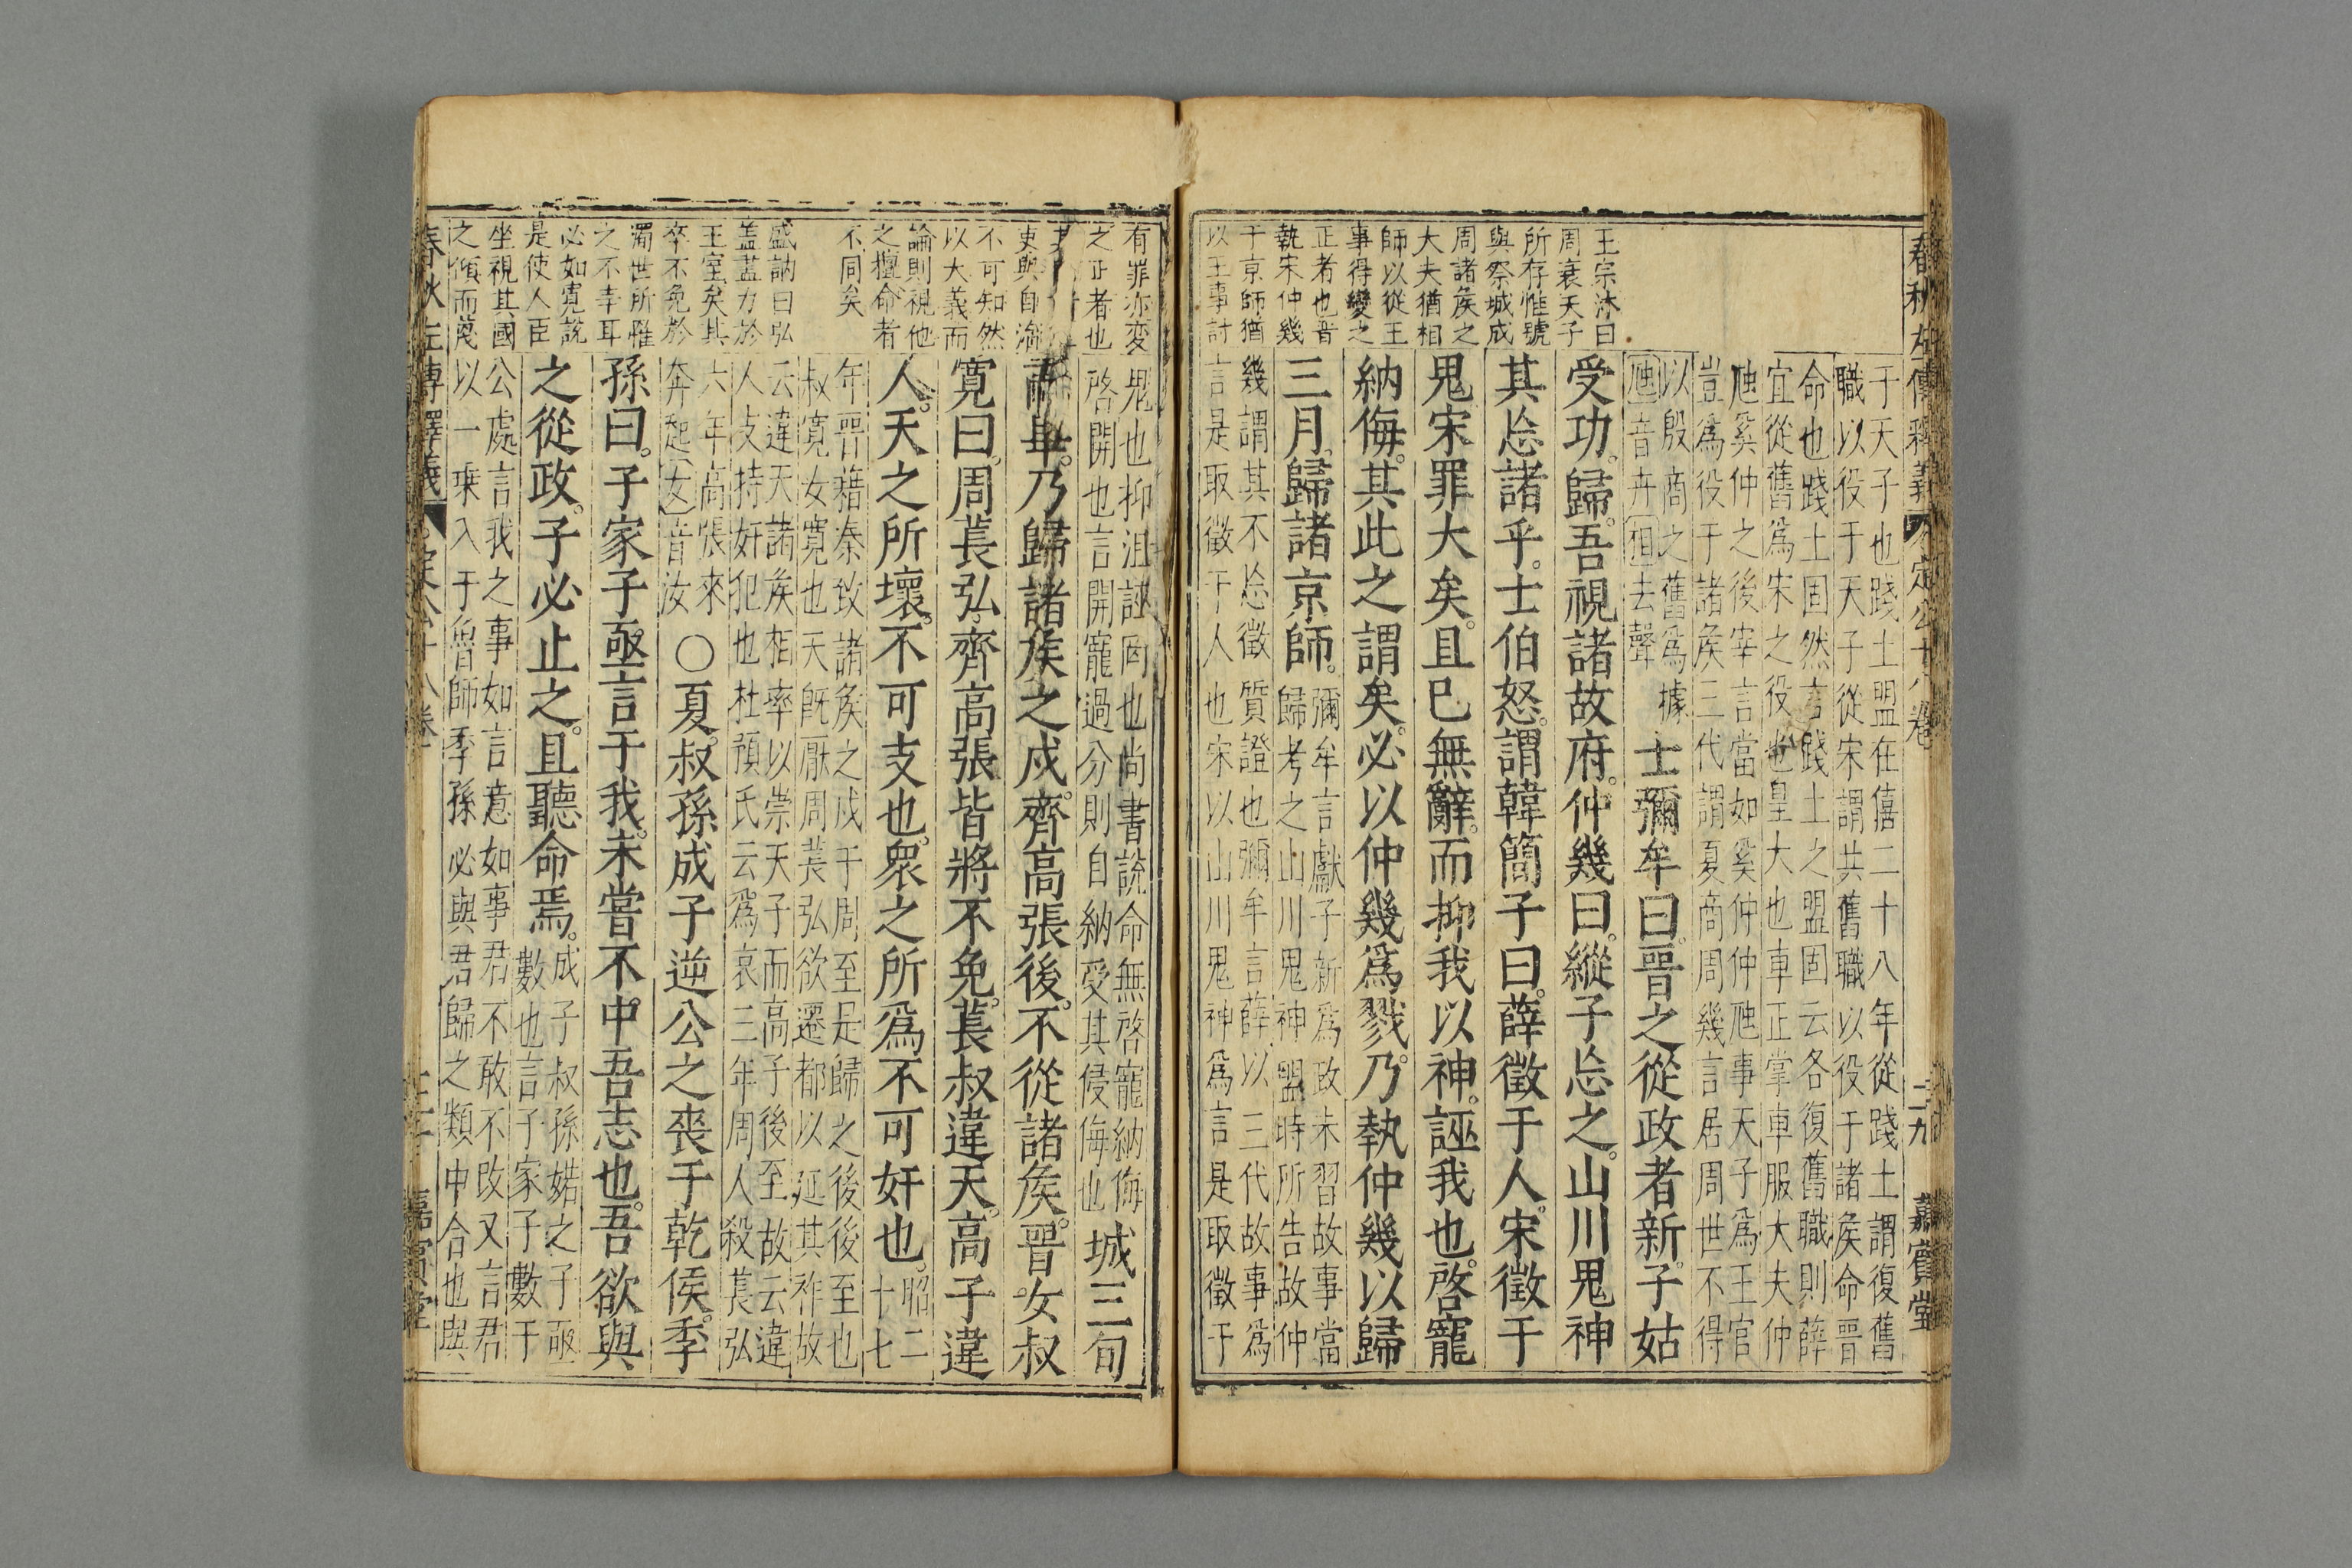 春秋左傳釋義 定公十八卷 二九 嘉賓堂
王宗沐曰
周衰天子
所存惟號
與祭城成
周諸矦之
大夫猶相
師以從王
事得變之
正者也晉
執宋仲幾
于京師猶
以王事討
于天子也踐土盟在僖二十八年從踐土謂復舊
職以役于天子從宋謂共舊職以役于諸矦命晋
命也踐土固然言踐土之盟固云各復舊職則薛
宜從舊爲宋之役也皇大也車正掌車服大夫仲
虺奚仲之後宰言當如奚仲仲虺事天子爲王官
豈爲役于諸矦三代謂夏商周幾言居周世不得
以殷商之舊爲據
虺音卉祖去聲
士彌牟曰晋之從政者新子姑
受功歸吾視諸故府仲幾曰縱子忘之山川鬼神
其忘諸乎士伯怒謂韓簡子曰薛徵于人宋徵于
鬼宋罪大矣且已無辭而抑我以神誣我也啓寵
納侮其此之謂矣必以仲幾爲戮乃執仲幾以歸
三月歸諸京師
彌牟言獻子新爲政未習故事當
歸考之山川鬼神盟時所告故仲
幾謂其不忘徵質證也彌牟言薛以三代故事爲
言是取徵于人也宋以山川鬼神爲言是取徵于
有罪亦変
之正者也
吏與自
不可知然
以大義而
論則視他
之擅命者
不同矣
盛訥曰弘
蓋藎力於
王室矣其
卒不免於
濁世所罹
之不幸耳
必如寛說
是使人臣
坐視其國
之傾而蔑
鬼也抑沮誣罔也尚書說命無啓寵納侮
啓開也言開寵過分則自納受其侵侮也
城三旬
而畢乃歸諸矦之戍齊高張後不從諸矦晋女叔
寛曰周萇弘齊高張皆將不免萇叔違天高子違
人天之所壞不可支也衆之所爲不可奸也
昭二
十七
年晋籍秦致諸矦之戍于周至是歸之後後至也
叔寛女寛也天旣厭周萇弘欲遷都以延其祚故
云違天諸矦相率以崇天子而高子後至故云違
人支持奸犯也杜預氏云爲哀三年周人殺萇弘
六年高張來
奔起女音汝
○夏叔孫成子逆公之喪于乾侯季
孫曰子家子亟言于我未嘗不中吾志也吾欲與
之從政子必止之且聽命焉
成子叔孫婼之子亟
數也言子家子數于
公處言我之事如言意如事君不敢不改又言君
以一乗入于魯師季孫必與君歸之類中合也與
春秋左傳釋義 定公十八卷 三十 嘉賓堂